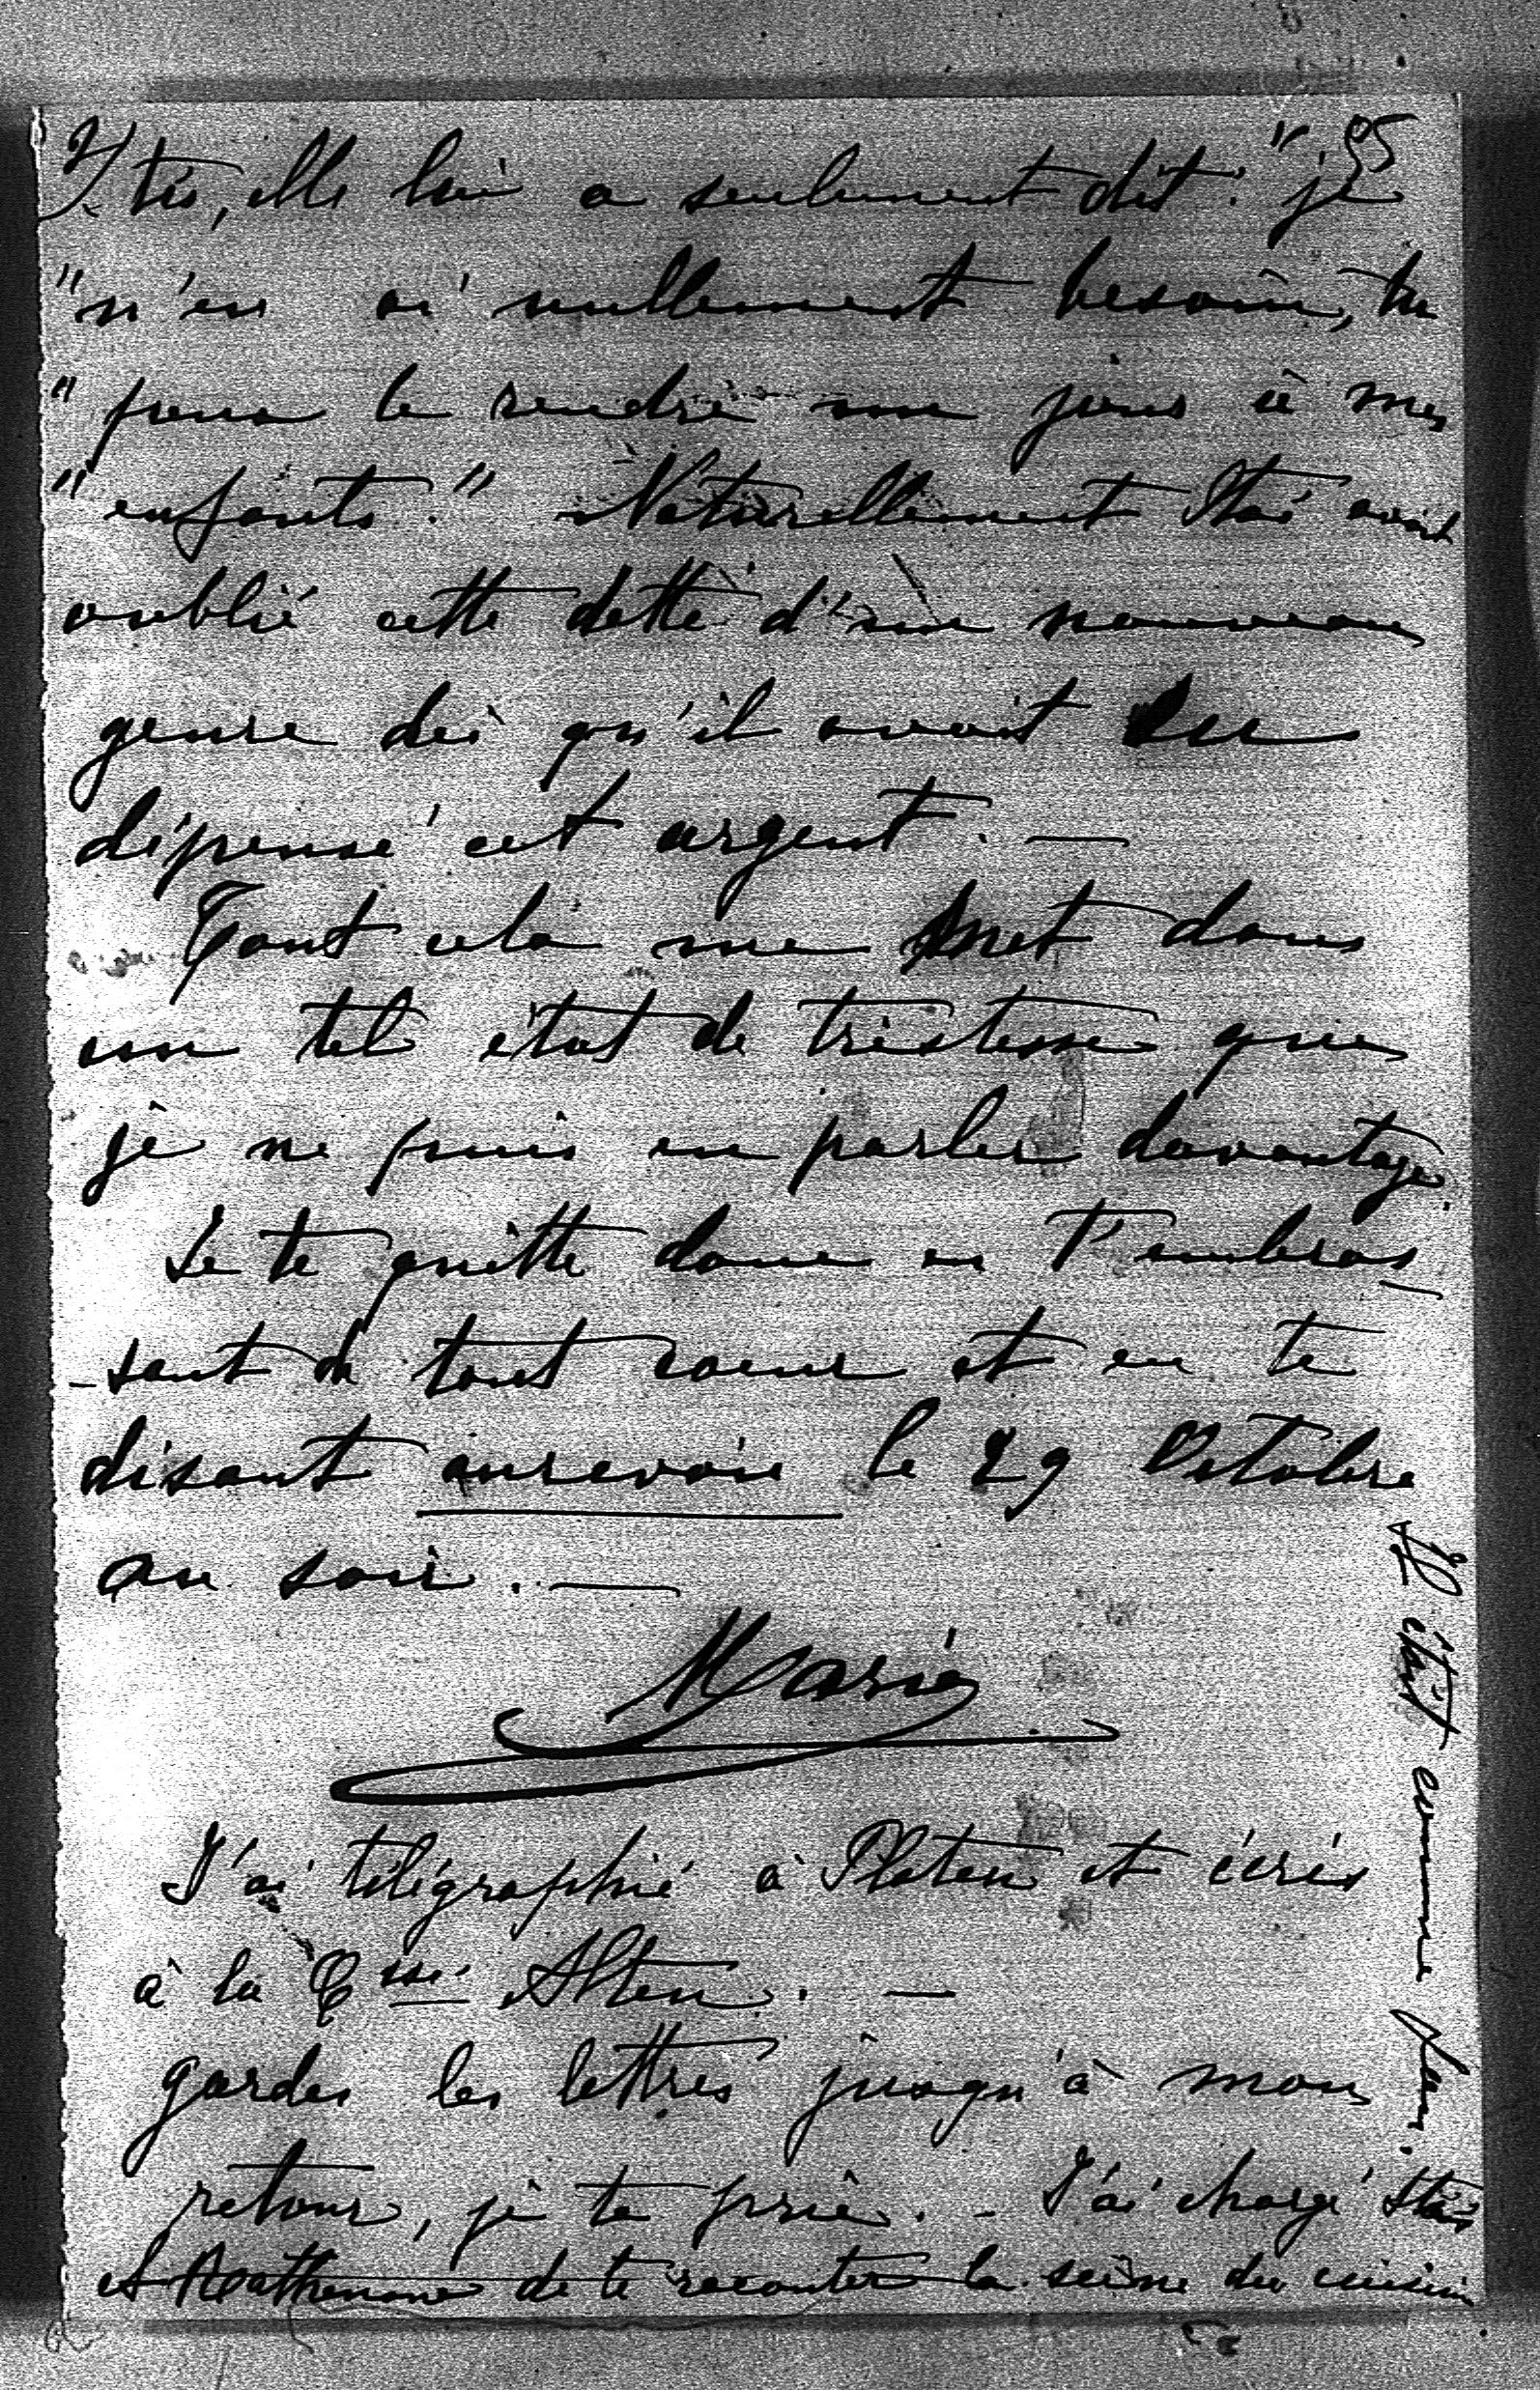 2/ tés, elle lui a seulement dit: "je
"n'en ai nullement besoin, tu
"peux le rendre un jour à mes
"enfants." Naturellement Stas avait
oublié cette dette d'un nouveau
genre dès qu'il avait eu
dépensé cet argent. —
Tout cela me met dans
un tel état de tristesse que
je ne puis en parler davantage.
Je te quitte donc en t'embras-
-sant de tout coeur et en te
disant aurevoir le 29 Octobre
au soir. —
Marie
J'ai télégraphié à Platen et écris
à la Csse Alten. —
gardes les lettres jusqu'à mon
retour, je te prie. - J'ai chargé Stas
et de te raconter la scène du cuisinier
Il était comme fou.